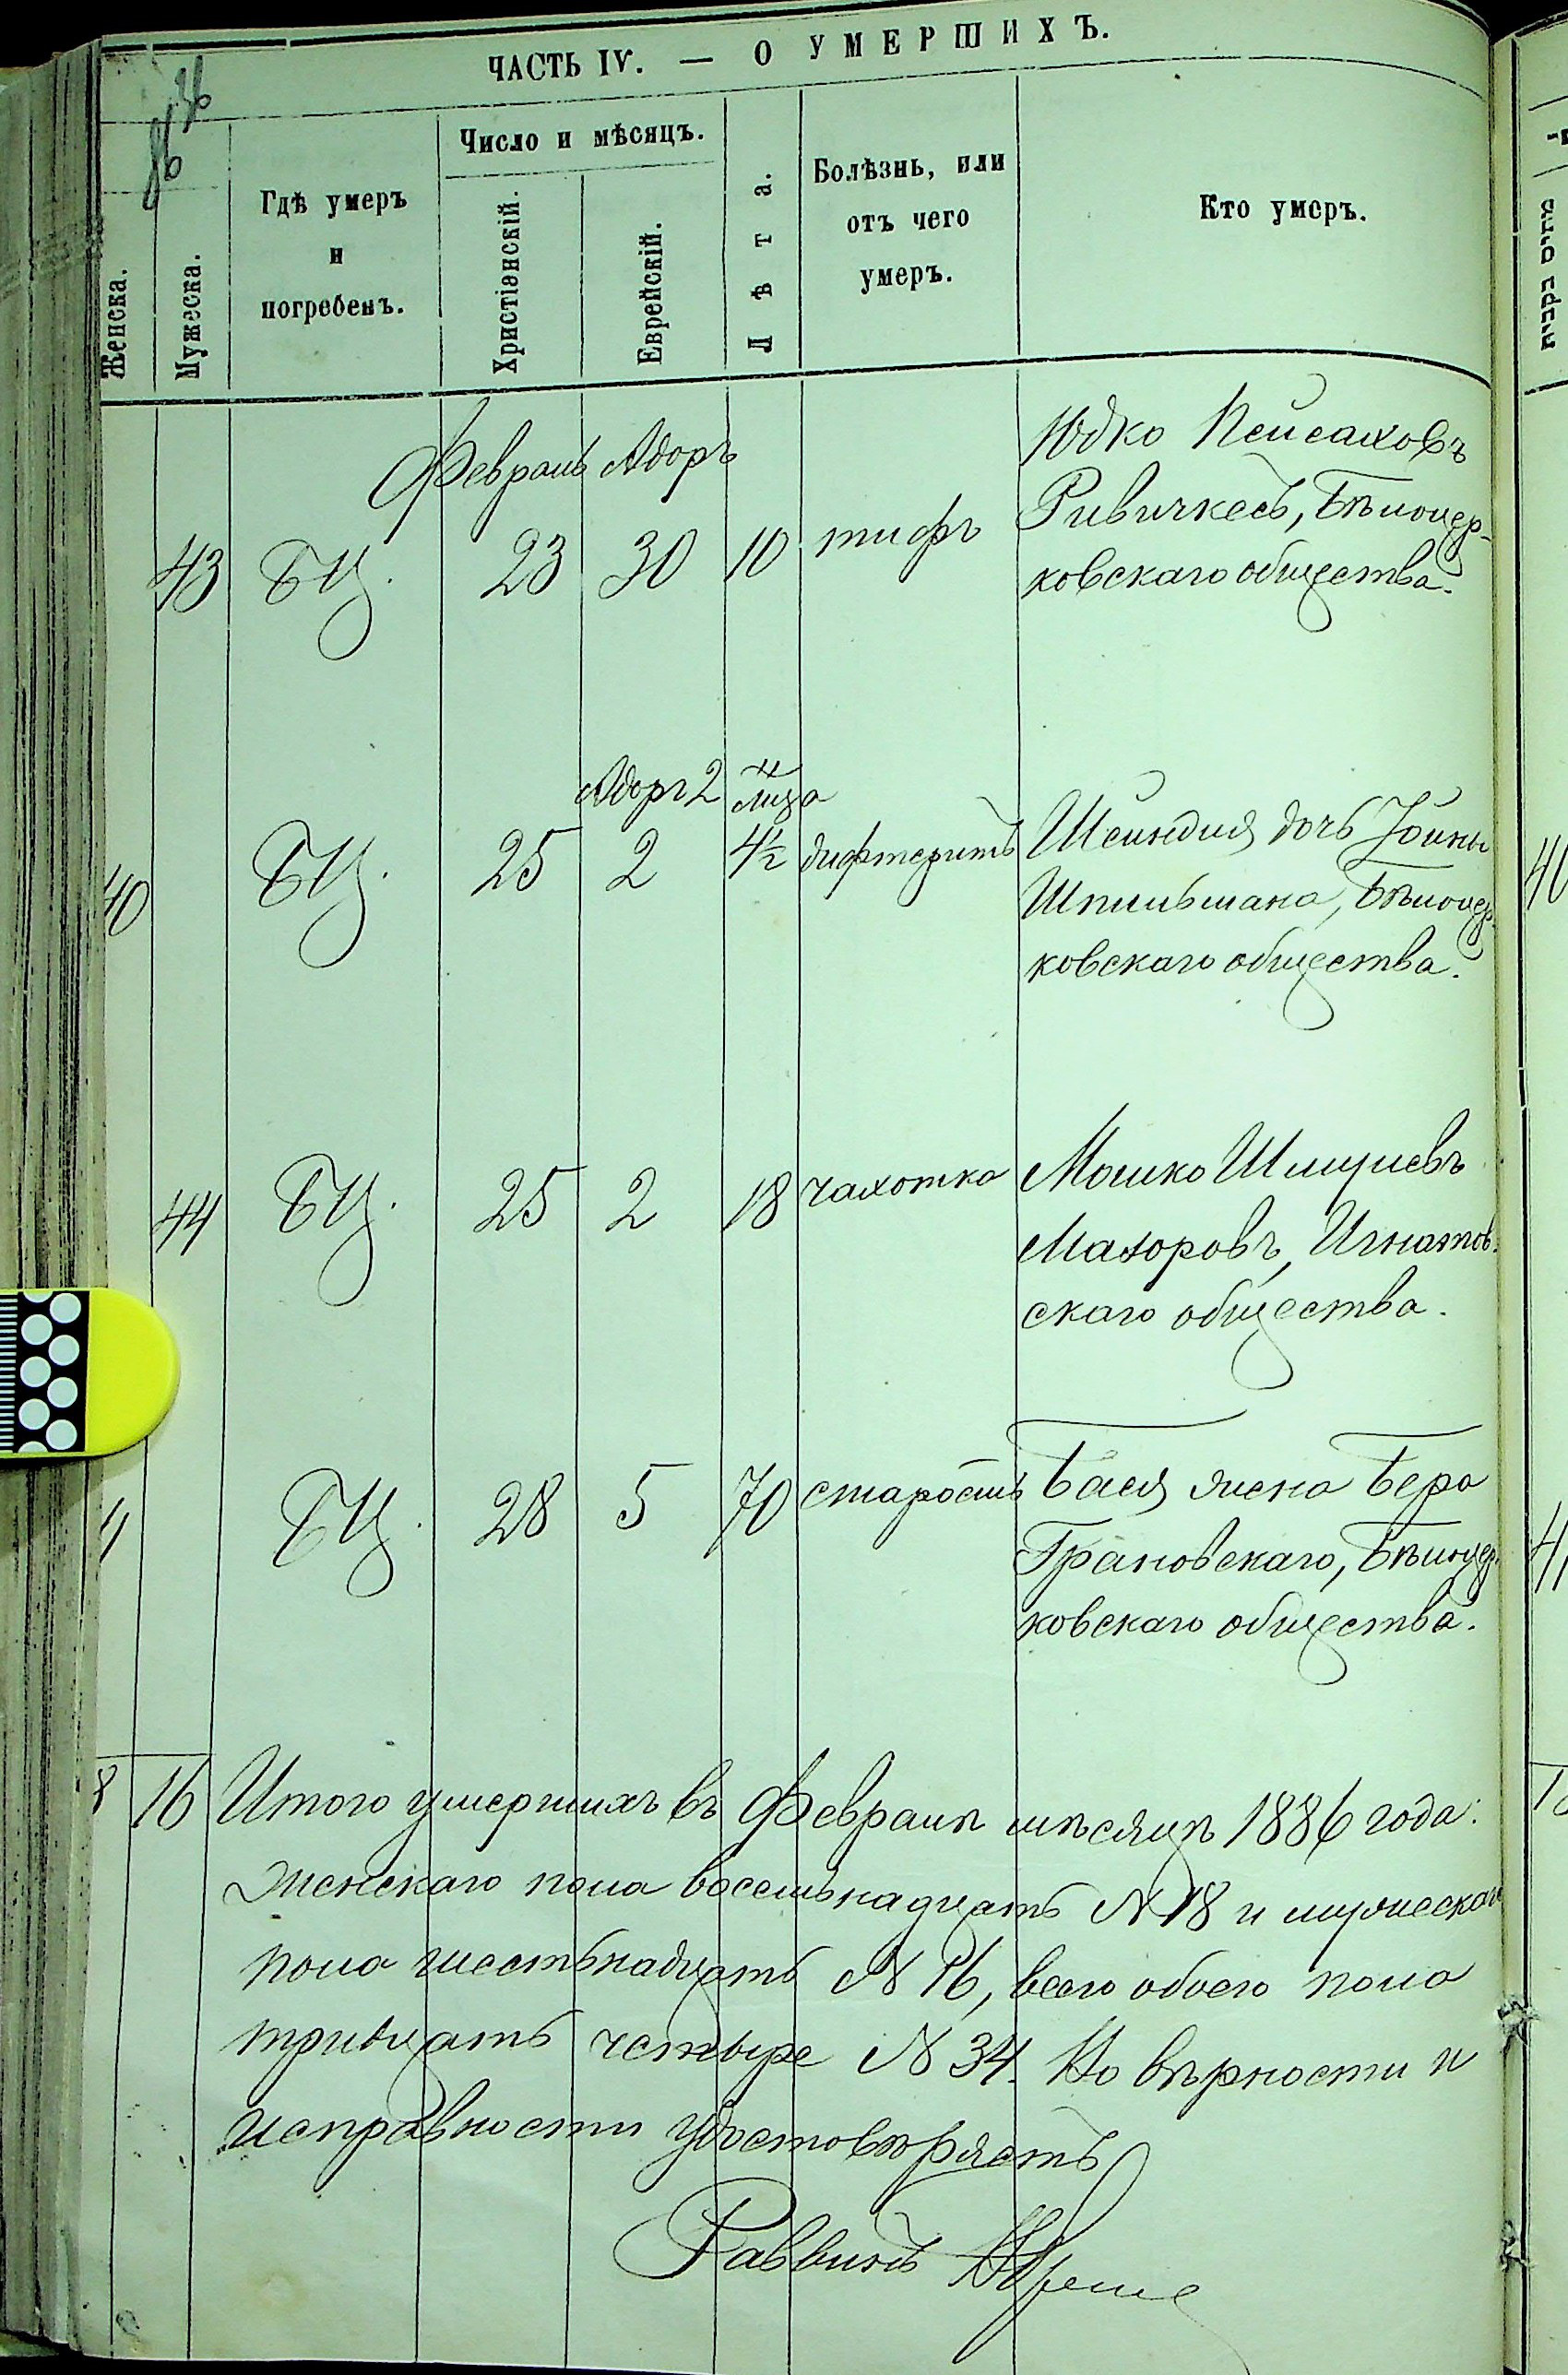 ЧАСТЬ IV. — О УМЕРШИХЪ.
Женска.
Мужеска.
Гдѣ умеръ
и
погребенъ.
Число и мѣсяцъ.
Христіанскій.
Еврейскій.
Лѣта.
Болѣзнь, или
отъ чего
умеръ.
Кто умеръ.
Февраль Адоръ
43 БЦ. 23 30 10 тифъ
Юдко Пейсаховъ
Ривичкесъ, Бѣлоцер-
ковскаго общества.
Адоръ 2
40 БЦ. 25 2 4½ дифтеритъ
Шейндля дочь Іойны
Шпильмана, Бѣлоцер-
ковскаго общества.
44 БЦ. 25 2 18 чахотка
Мошко Шмулевъ
Мазоровъ, Игнатов-
скаго общества.
БЦ. 28 5 70 старость
Бася жена Бера
Грановскаго, Бѣлоцер-
ковскаго общества.
8 16 Итого умершихъ въ Февралѣ мѣсяцѣ 1886 года:
женскаго пола восемьнадцать N 18 и мужескаго
пола шестьнадцать N 16, всего обоего пола
тридцать четыре N 34. Но вѣрности и
исправности удостовѣряетъ
Раввинъ